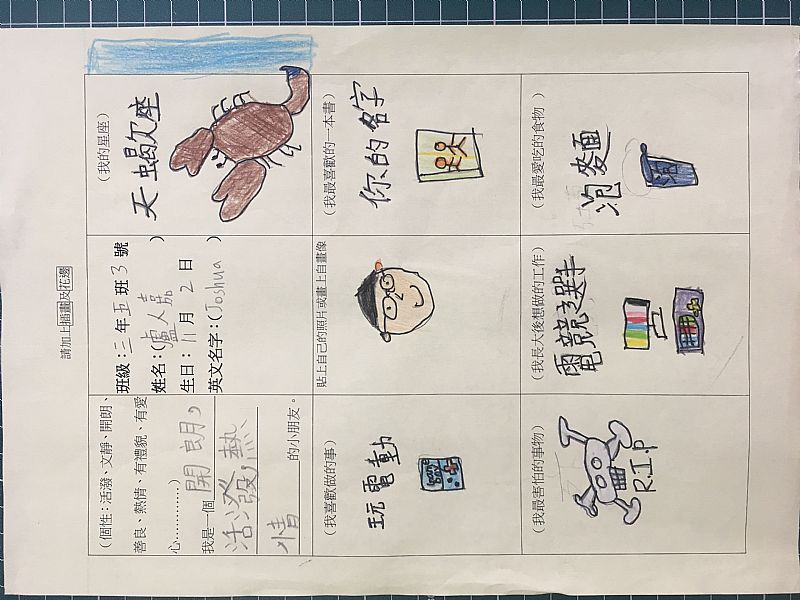 請加上插畫及花邊
(個性：活潑、文靜、開朗、
善良、熱情、有禮貌、有愛
心…………)
我是一個開朗,
活潑,熱
情的小朋友。
班級：三年五班3號
姓名：(盧人嘉)
生日：11月2日
英文名字：(Joshua)
(我的星座)
天蠍座
(我喜歡做的事)
玩電動
貼上自己的照片或畫上自畫像
(我最喜歡的一本書)
你的名字
(我最害怕的事物)
R.I.P
(我長大後想做的工作)
電競選手
(我最愛吃的食物)
泡麵